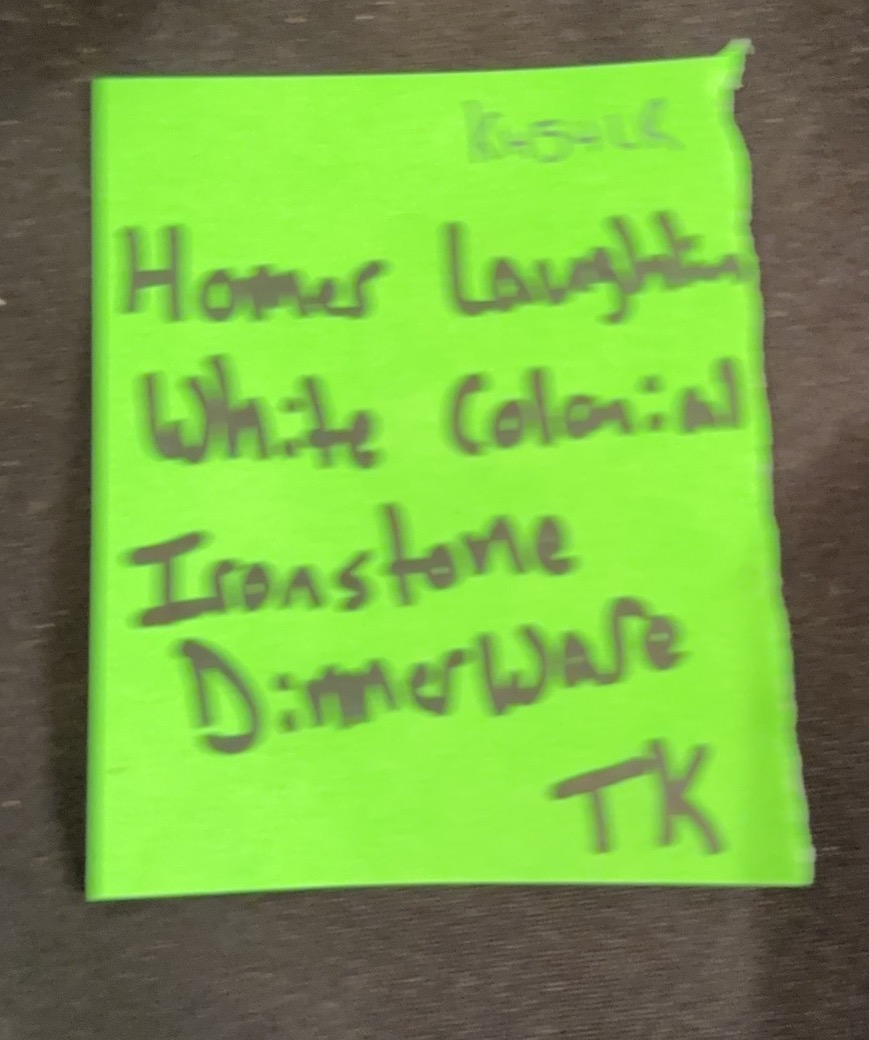 Homer Laughlin
White Colonial
Ironstone
Dinnerware
TK